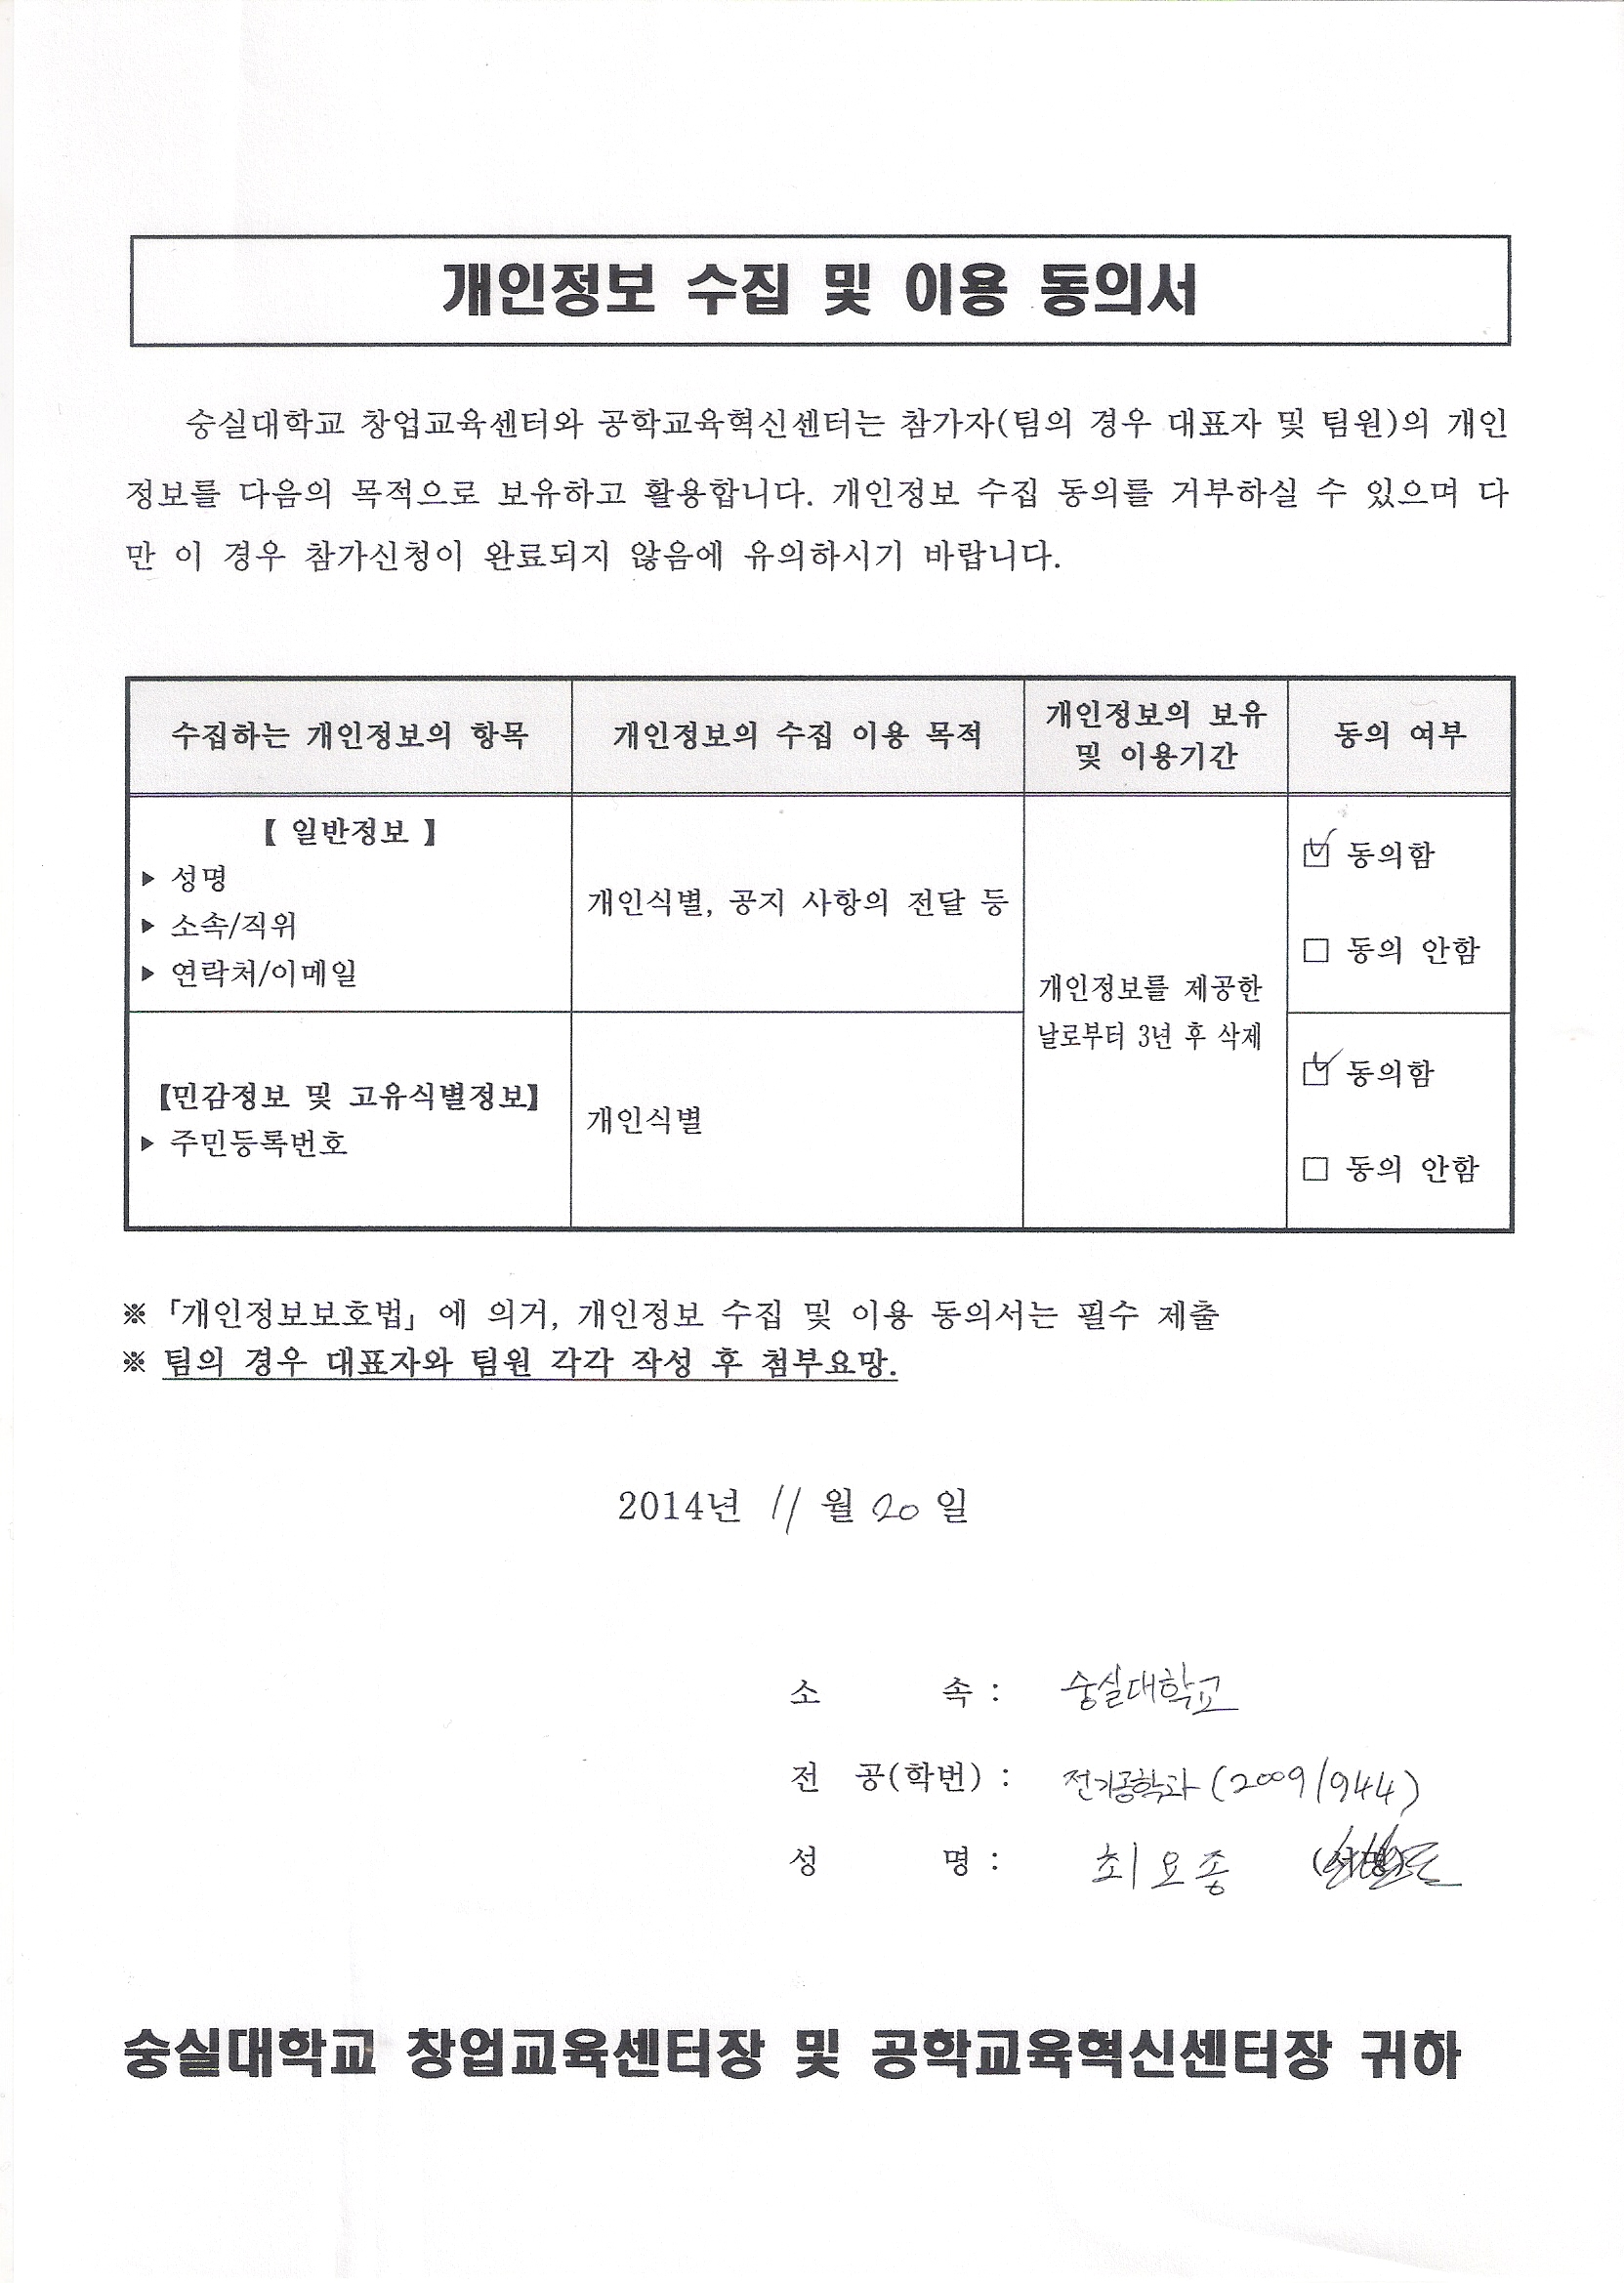 개인정보 수집 및 이용 동의서
숭실대학교 창업교육센터와 공학교육혁신센터는 참가자(팀의 경우 대표자 및 팀원)의 개인
정보를 다음의 목적으로 보유하고 활용합니다. 개인정보 수집 동의를 거부하실 수 있으며 다
만 이 경우 참가신청이 완료되지 않음에 유의하시기 바랍니다.
수집하는 개인정보의 항목
개인정보의 수집 이용 목적
개인정보의 보유
및 이용기간
동의 여부
【 일반정보 】
▶ 성명
▶ 소속/직위
▶ 연락처/이메일
개인식별, 공지 사항의 전달 등
개인정보를 제공한
날로부터 3년 후 삭제
☑ 동의함
□ 동의 안함
【민감정보 및 고유식별정보】
▶ 주민등록번호
개인식별
☑ 동의함
□ 동의 안함
※ 「개인정보보호법」에 의거, 개인정보 수집 및 이용 동의서는 필수 제출
※ 팀의 경우 대표자와 팀원 각각 작성 후 첨부요망.
2014년 11 월 20 일
소 속 : 숭실대학교
전 공(학번) : 전기공학과 (20091944)
성 명 : 최요종
숭실대학교 창업교육센터장 및 공학교육혁신센터장 귀하